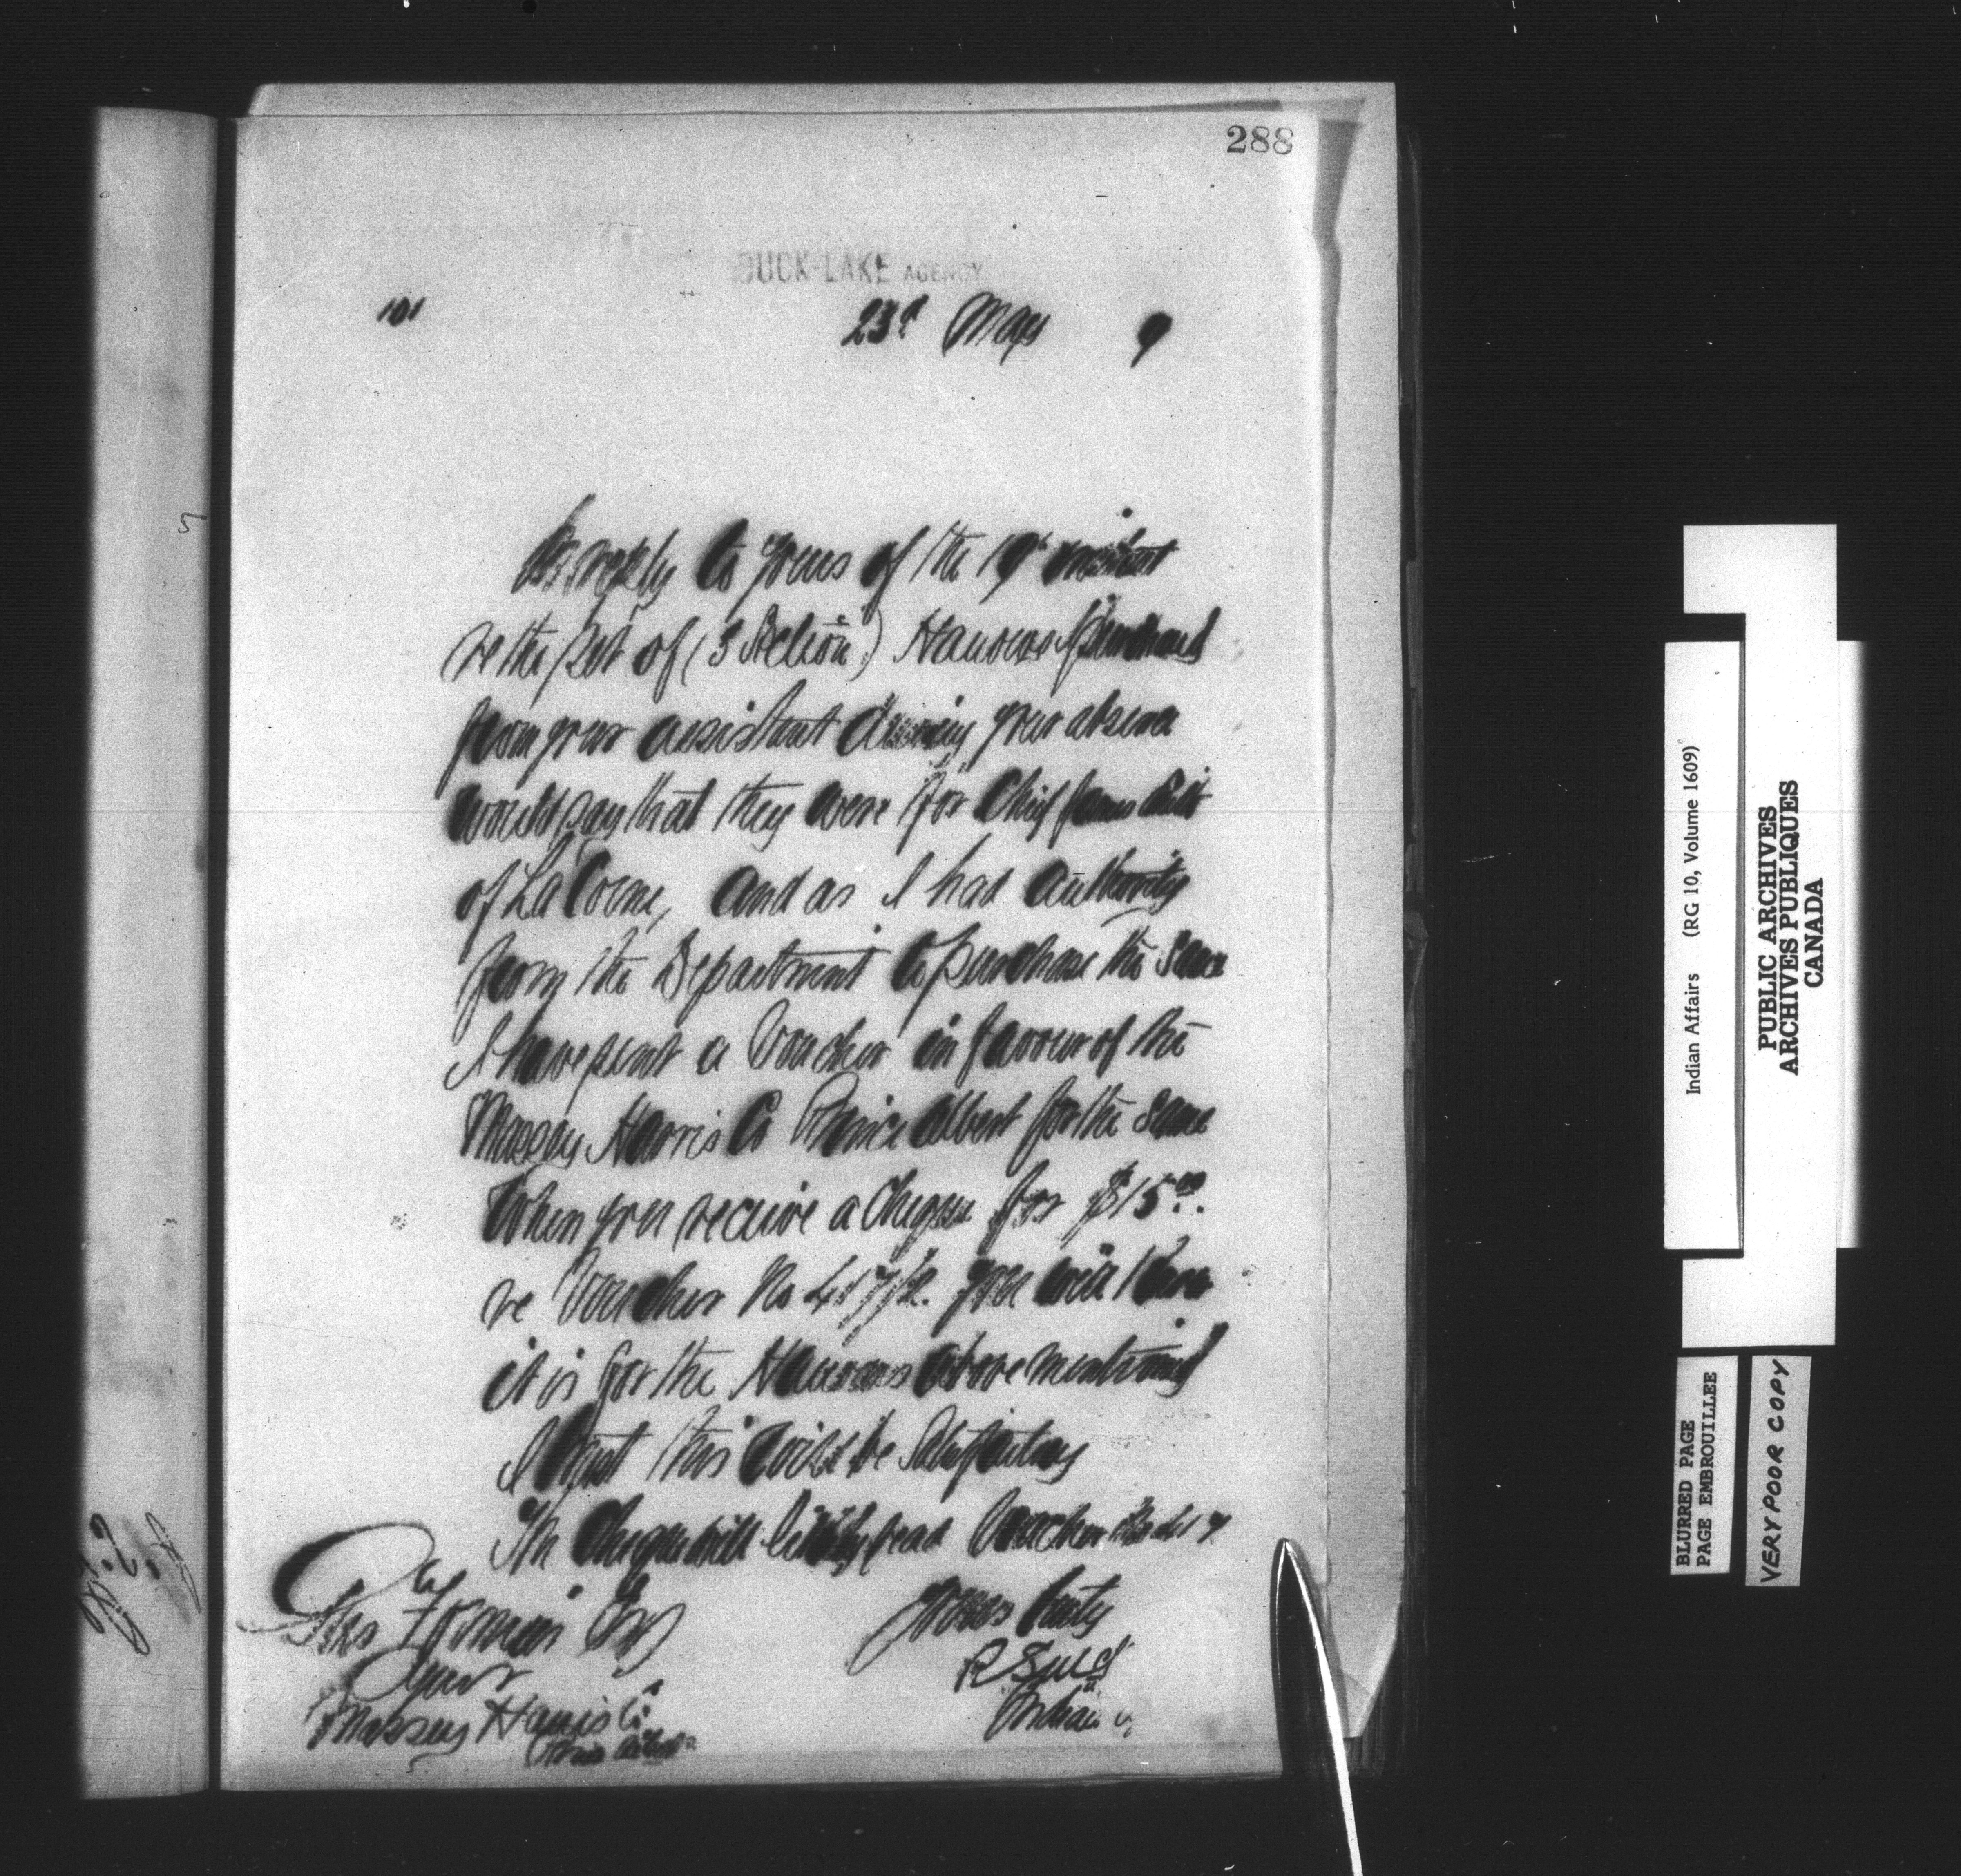 288
DUCK LAKE AGENCY
101 23d May 9
In reply to yours of the 19th instant
re the set of (3 Section) Harrows purchased
from your assistant during your absence
would say that they were for Chief James Smith
of La Corne, and as I had authority
from the Department to purchase the same
I have sent a Voucher in favour of the
Massey Harris Co Prince Albert for the same
When you receive a Cheque for $15.00.
re Voucher No 417/2. you will know
it is for the Harrows above mentioned
I trust this will be Satisfactory
The Cheque will read Voucher No 417
Yours truly
Esq
Agent
Massey Harris Co.
Prince Albert
Indian
Indian Affairs (RG 10, Volume 1609)
PUBLIC ARCHIVES
ARCHIVES PUBLIQUES
CANADA
BLURRED PAGE
PAGE EMBROUILLEE
VERY POOR COPY